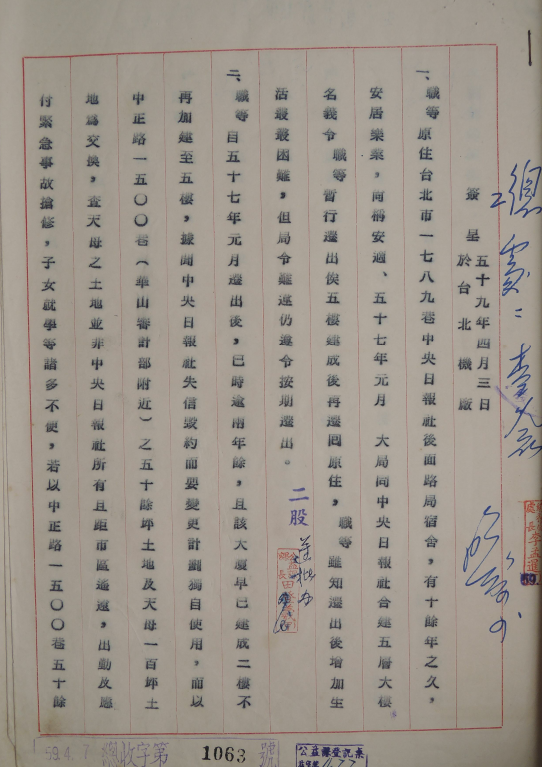 簽呈
五十九年四月三日
於台北機廠
一、職等原住台北市一七八九巷中央日報社後面路局宿舍，有十餘年之久，
安居樂業，尚稱安適、五十七年元月　大局同中央日報社合建五層大樓
名義令　職等暫行遷出俟五樓建成後再遷回原住，職等雖知遷出後增加生
活最最困難，但局令難違仍遵令按期遷出。
二、職等自五十七年元月遷出後，已時逾兩年餘，且該大廈早已建成二樓不
再加建至五樓，據聞中央日報社失信毀約而要變更計劃獨自使用，而以
中正路一五００巷（華山審計部附近）之五十餘坪土地及天母一百坪土
地為交換，查天母之土地並非中央日報社所有且距市區遙遠，出勤及應
付緊急事故搶修，子女就學等諸多不便，若以中正路一五００巷五十餘
二股
59.4.7
總收字第 1063 號
公益課登記案